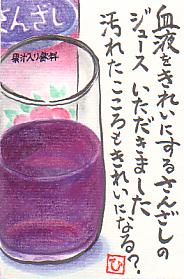 さんざし
果汁入り飲料
血液をきれいにするさんざしの
ジュース いただきました
汚れたこころもきれいになる?.
ひ